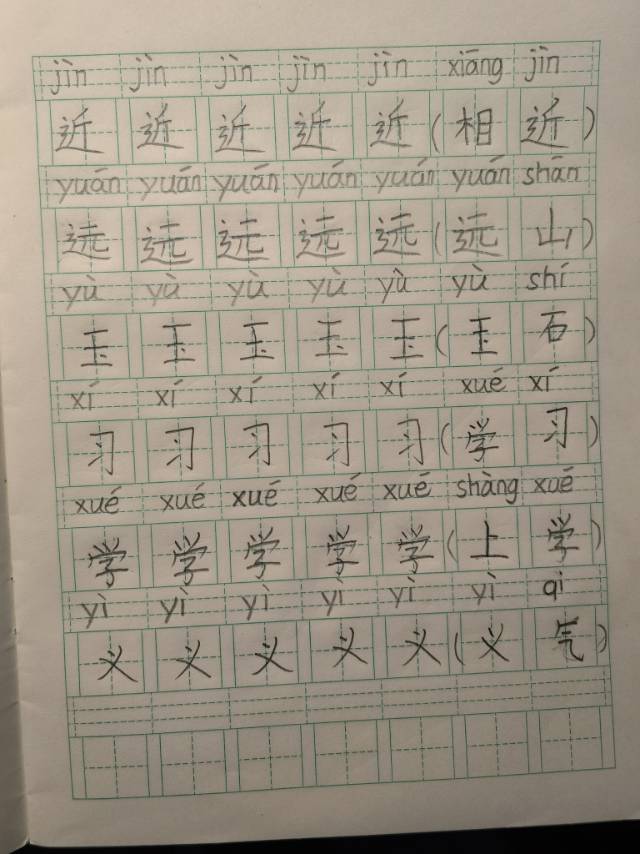 jìn jìn jìn jìn jìn xiāng jìn
近 近 近 近 近 ( 相 近 )
yuǎn yuǎn yuǎn yuǎn yuǎn yuǎn shān
远 远 远 远 远 ( 远 山 )
yù yù yù yù yù yù shí
玉 玉 玉 玉 玉 ( 玉 石 )
xí xí xí xí xí xué xí
习 习 习 习 习 ( 学 习 )
xué xué xué xué xué shàng xué
学 学 学 学 学 ( 上 学 )
yì yì yì yì yì yì qi
义 义 义 义 义 ( 义 气 )